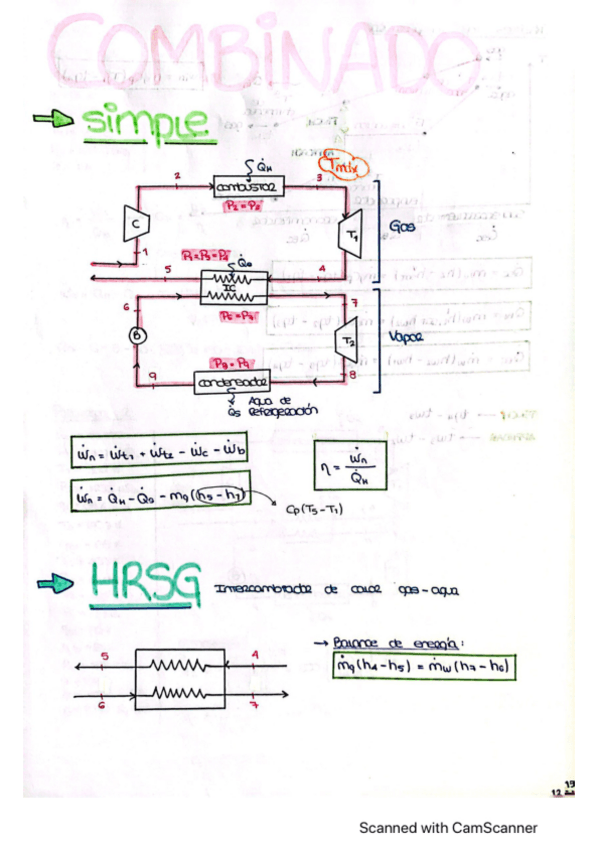 COMBINADO
simple
Q̇H
Tmáx
2
COMBUSTOR
3
P2 = P2
C
T1
Gas
1
P1=P5=P4
Q̇o
5
4
IC
6
7
P6 = P7
B
T2
Vapor
P8 = P9
9
condensador
8
Agua de
Q̇s Refrigeración
Ẇn = Ẇt1 + Ẇt2 - Ẇc - Ẇb
η = Ẇn / Q̇H
Ẇn = Q̇H - Q̇o - mg(h5 - h1)
Cp(T5-T1)
HRSG Intercambiador de calor gas-agua
→ Balance de energía:
5
4
ṁg(h4-h5) = ṁw(h7-h6)
6
7
19
12
Scanned with CamScanner